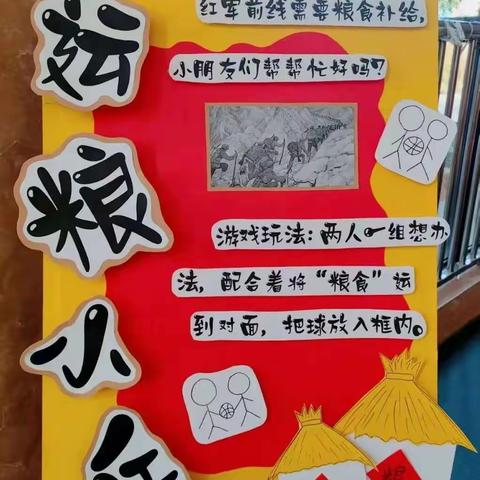 运
粮
小
红军前线需要粮食补给,
小朋友们帮帮忙好吗?
游戏玩法:两人一组想办
法,配合着将“粮食”运
到对面,把球放入框内。
粮